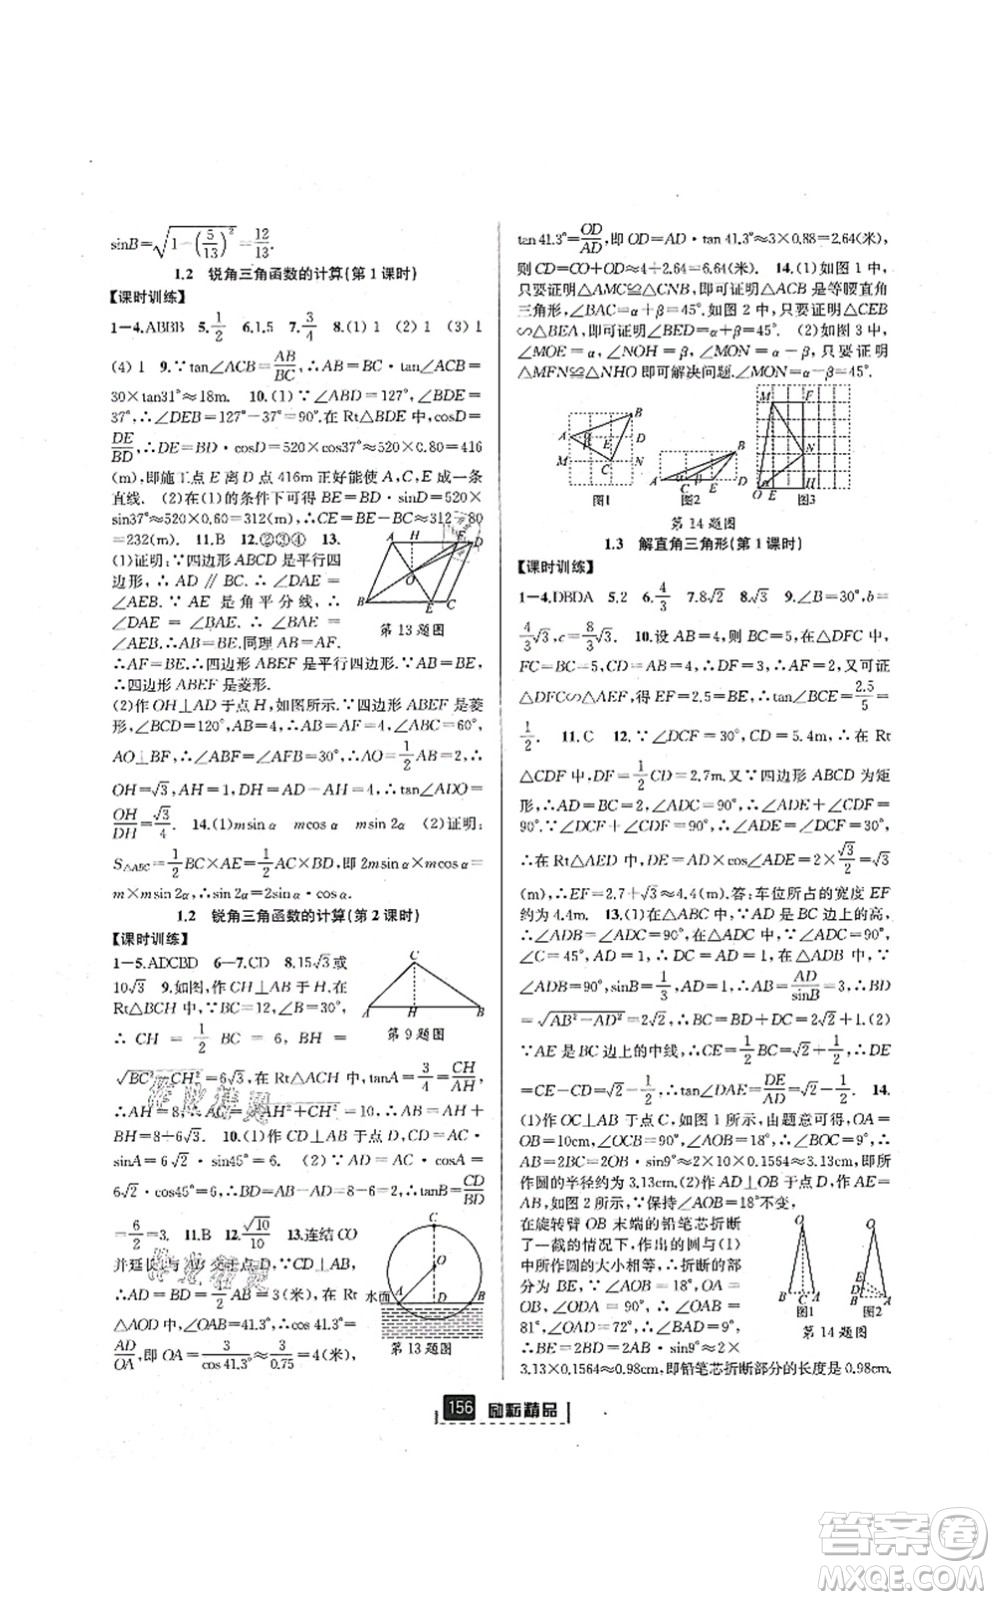 sinB=√(1-(5/13)²)=12/13.
1.2 锐角三角函数的计算(第1课时)
【课时训练】
1—4.ABBB 5.1/2 6.1.5 7.3/4 8.(1)1 (2)1 (3)1
(4)1 9.∵tan∠ACB=AB/BC,∴AB=BC·tan∠ACB=
30×tan31°≈18m. 10.(1)∵∠ABD=127°,∠BDE=
37°,∴∠DEB=127°-37°=90°.在Rt△BDE中,cosD=
DE/BD,∴DE=BD·cosD=520×cos37°≈520×0.80=416
(m),即施工点E离D点416m正好能使A,C,E成一条
直线. (2)在(1)的条件下可得BE=BD·sinD=520×
sin37°≈520×0.60=312(m),∴CE=BE-BC≈312-80
=232(m). 11.B 12.②③④ 13.
(1)证明:∵四边形ABCD是平行四
边形,∴AD∥BC.∴∠DAE=
∠AEB.∵AE是角平分线,∴
∠DAE=∠BAE.∴∠BAE=
∠AEB.∴AB=BE.同理AB=AF.
∴AF=BE.∴四边形ABEF是平行四边形.∵AB=BE,
∴四边形ABEF是菱形.
第13题图
(2)作OH⊥AD于点H,如图所示.∵四边形ABEF是菱
形,∠BCD=120°,AB=4,∴AB=AF=4,∠ABC=60°,
AO⊥BF,∴∠ABF=∠AFB=30°,∴AO=1/2AB=2,∴
OH=√3,AH=1,∴DH=AD-AH=5-1=4,∴tan∠ADO=
OH/DH=√3/4. 14.(1)msinα mcosα msin2α (2)证明:
S△ABC=1/2BC×AE=1/2AC×BD,即2msinα×mcosα=
m×msin2α,∴sin2α=2sinα·cosα.
1.2 锐角三角函数的计算(第2课时)
【课时训练】
1—5.ADCBD 6—7.CD 8.15√3或
10√3 9.如图,作CH⊥AB于H.在
Rt△BCH中,∵BC=12,∠B=30°,
∴CH=1/2BC=6,BH=
√(BC²-CH²)=6√3.在Rt△ACH中,tanA=3/4=CH/AH,
∴AH=8,∴AC=√(AH²+CH²)=10,∴AB=AH+
BH=8+6√3. 10.(1)作CD⊥AB于点D,∴CD=AC·
sinA=6√2·sin45°=6. (2)∵AD=AC·cosA=
6√2·cos45°=6,∴BD=AB-AD=8-6=2,∴tanB=CD/BD
=6/2=3. 11.B 12.√10/10 13.连结CO
并延长与AB交于点D,∵CD⊥AB,
∴AD=BD=1/2AB=3(米),在Rt
△AOD中,∵∠OAB=41.3°,∴cos41.3°=
AD/OA,即OA=3/cos41.3°≈3/0.75=4(米),
第9题图
水面
第13题图
tan41.3°=OD/AD,即OD=AD·tan41.3°≈3×0.88=2.64(米),
则CD=CO+OD≈4+2.64=6.64(米). 14.(1)如图1中,
只要证明△AMC≌△CNB,即可证明△ACB是等腰直角
三角形,∠BAC=α+β=45°.如图2中,只要证明△CEB
∽△BEA,即可证明∠BED=α+β=45°. (2)如图3中,
∠MOE=α,∠NOH=β,∠MON=α-β,只要证明
△MFN≌△NHO即可解决问题.∠MON=α-β=45°.
图1 图2 图3
第14题图
1.3 解直角三角形(第1课时)
【课时训练】
1—4.DBDA 5.2 6.4/3 7.8√2 8.√3 9.∠B=30°,b=
4/3√3,c=8/3√3. 10.设AB=4,则BC=5,在△DFC中,
FC=BC=5,CD=AB=4,∴DF=3,∴AF=2,又可证
△DFC∽△AEF,得EF=2.5=BE,∴tan∠BCE=2.5/5=
1/2. 11.C 12.∵∠DCF=30°,CD=5.4m,∴在Rt
△CDF中,DF=1/2CD=2.7m.又∵四边形ABCD为矩
形,∴AD=BC=2m,∠ADC=90°,∠ADE+∠CDF=
90°.又∵∠DCF+∠CDF=90°,∴∠ADE=∠DCF=30°,
∴在Rt△AED中,DE=AD×cos∠ADE=2×√3/2=√3
(m),∴EF=2.7+√3≈4.4(m).答:车位所占的宽度EF
约为4.4m. 13.(1)在△ABC中,∵AD是BC边上的高,
∴∠ADB=∠ADC=90°.在△ADC中,∵∠ADC=90°,
∠C=45°,AD=1,∴DC=AD=1.在△ADB中,∵
∠ADB=90°,sinB=1/3,AD=1,∴AB=AD/sinB=3,∴BD
=√(AB²-AD²)=2√2,∴BC=BD+DC=2√2+1.(2)
∵AE是BC边上的中线,∴CE=1/2BC=√2+1/2,∴DE
=CE-CD=√2-1/2,∴tan∠DAE=DE/AD=√2-1/2 14.
(1)作OC⊥AB于点C,如图1所示,由题意可得,OA=
OB=10cm,∠OCB=90°,∠AOB=18°,∴∠BOC=9°,
∴AB=2BC=2OB·sin9°≈2×10×0.1564≈3.13cm,即所
作圆的半径约为3.13cm.(2)作AD⊥OB于点D,作AE=
AB,如图2所示,∵保持∠AOB=18°不变,
在旋转臂OB末端的铅笔芯折断了
一截的情况下,作出的圆与(1)
中所作圆的大小相等,∴折断的部
分为BE,∵∠AOB=18°,OA=
OB,∠ODA=90°,∴∠OAB=
81°,∠OAD=72°,∴∠BAD=9°,
∴BE=2BD=2AB·sin9°≈2×
3.13×0.1564≈0.98cm,即铅笔芯折断部分的长度是0.98cm.
图1 图2
第14题图
156 励耘精品
答案卷
MXQE.COM